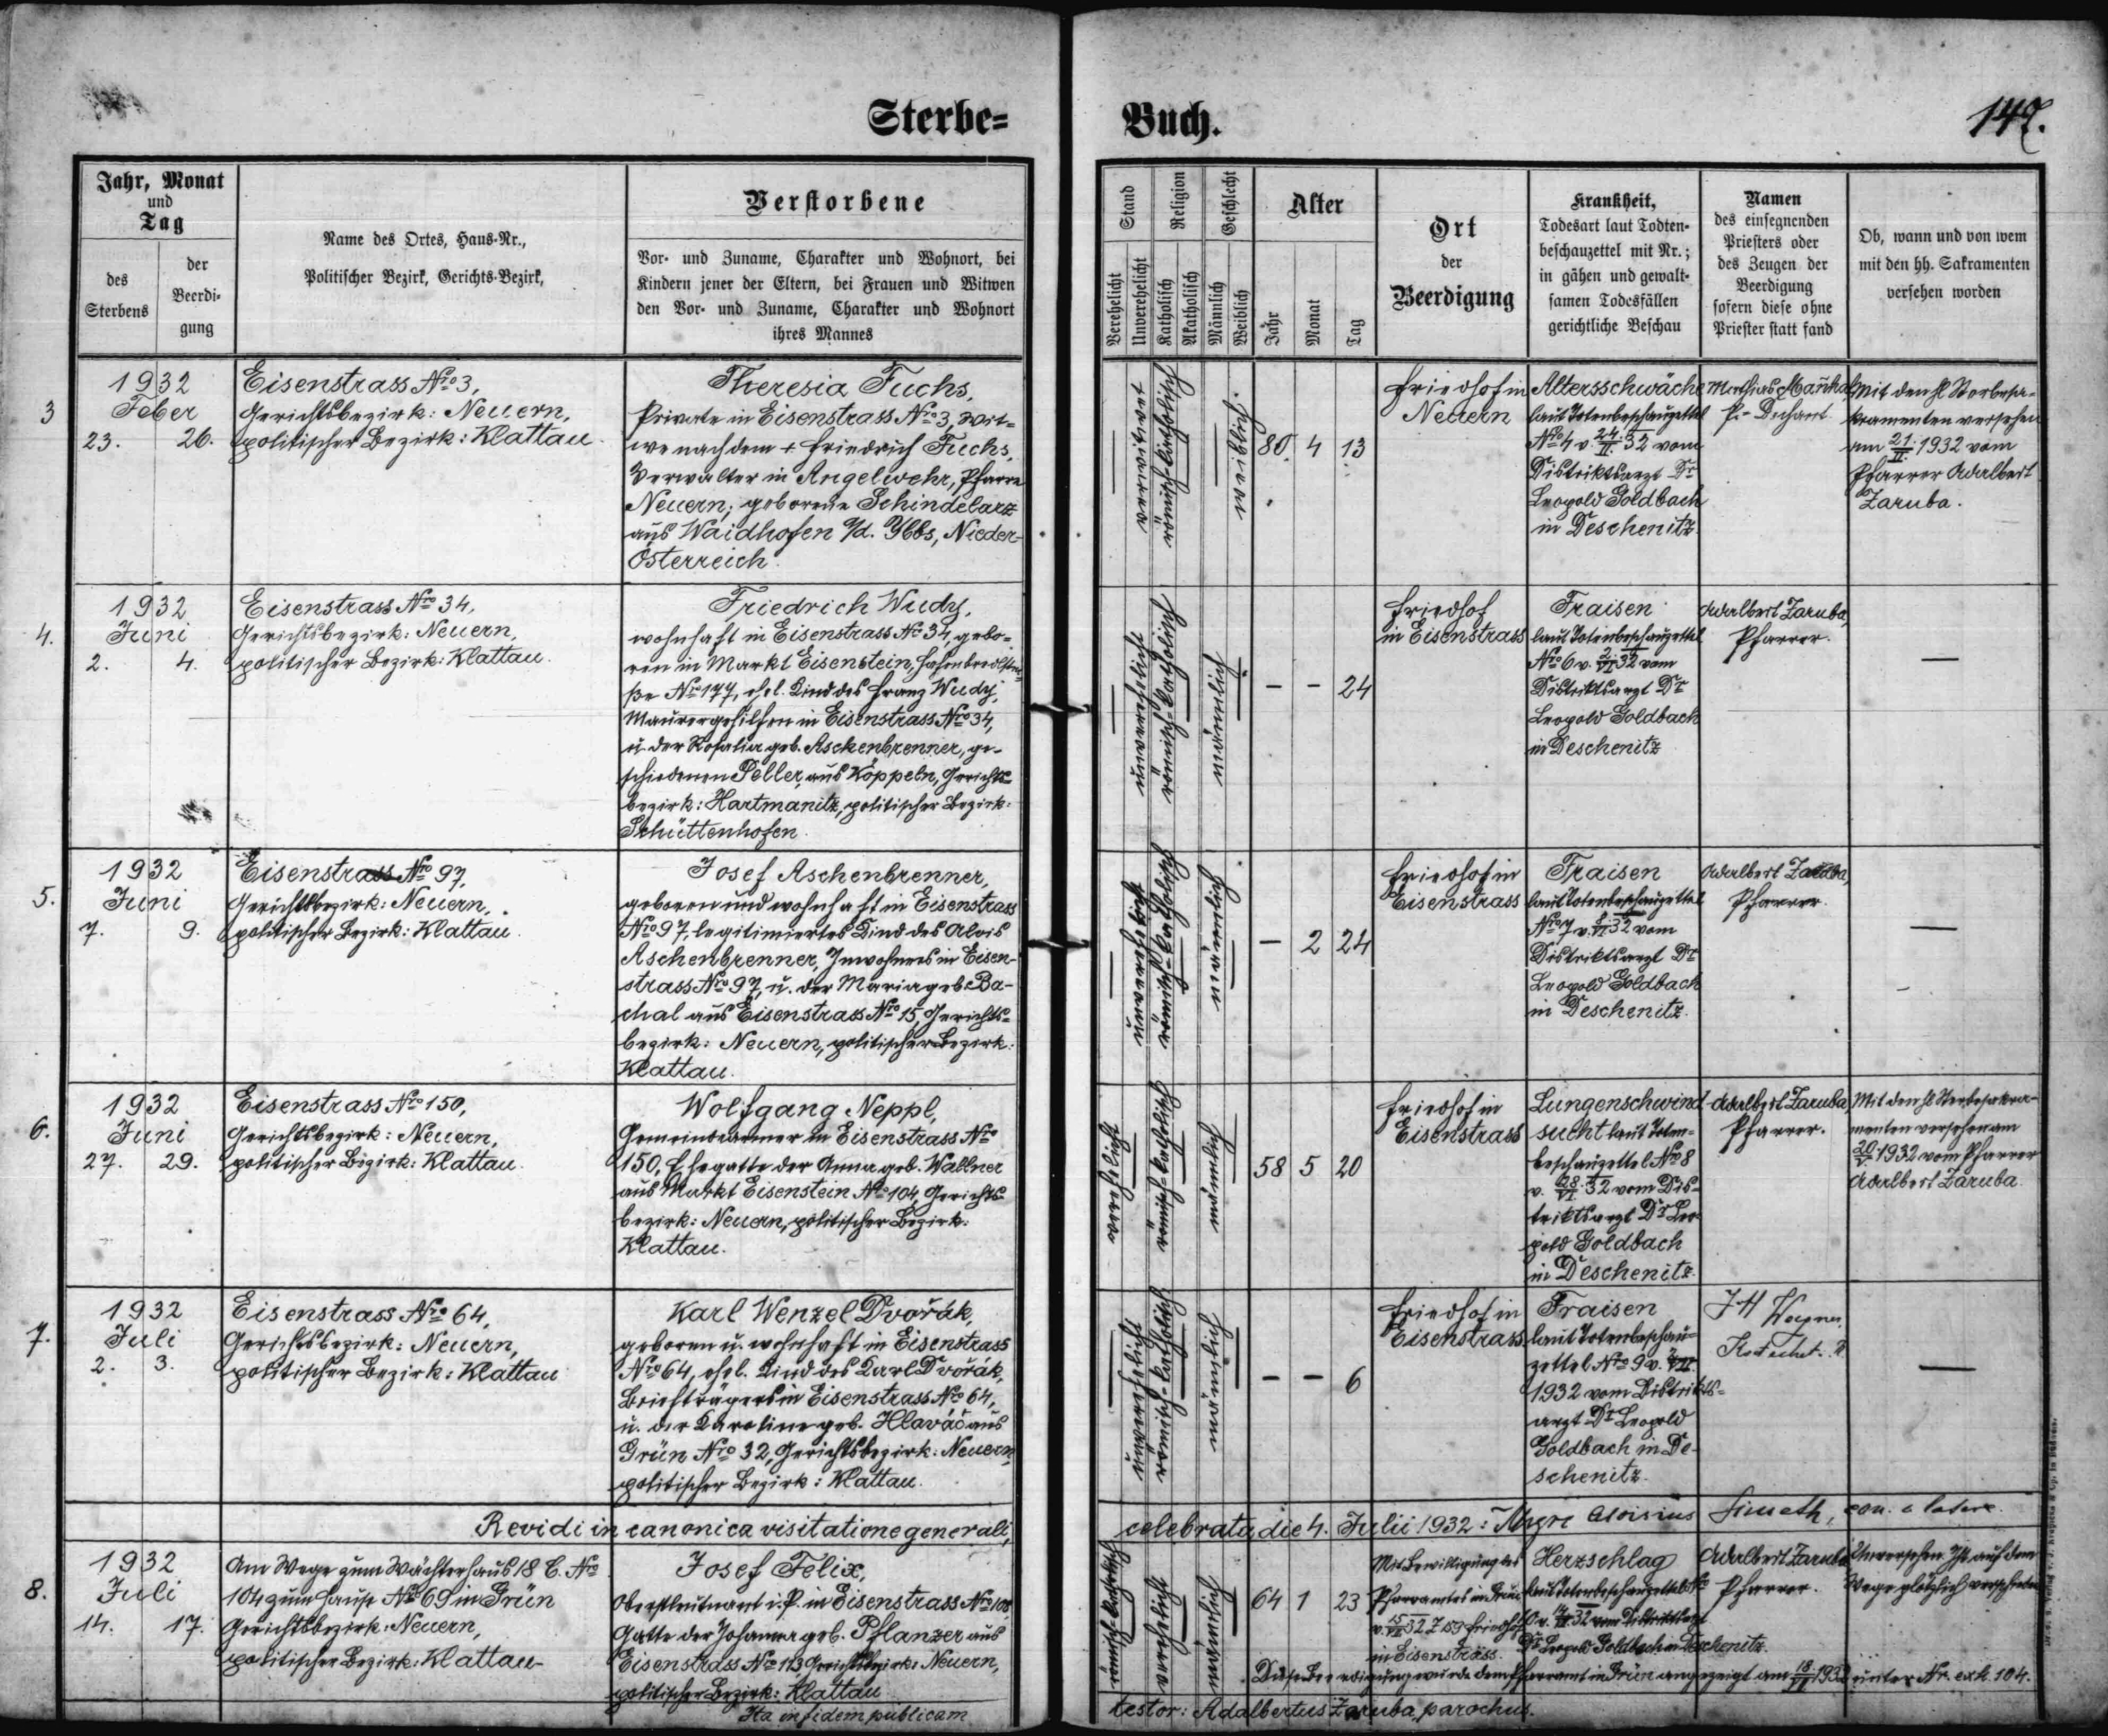 Sterbe=
Buch.
147.
Jahr, Monat
und
Tag
des
Sterbens
der
Beerdi-
gung
Name des Ortes, Haus-Nr.,
Politischer Bezirk, Gerichts-Bezirk,
Verstorbene
Vor- und Zuname, Charakter und Wohnort, bei
Kindern jener der Eltern, bei Frauen und Witwen
den Vor- und Zuname, Charakter und Wohnort
ihres Mannes
Stand
Verehelicht
Unverehelicht
Religion
Katholisch
Akatholisch
Geschlecht
Männlich
Weiblich
Alter
Jahr
Monat
Tag
Ort
der
Beerdigung
Krankheit,
Todesart laut Todten-
beschauzettel mit Nr.;
in gähen und gewalt-
samen Todesfällen
gerichtliche Beschau
Namen
des einsegnenden
Priesters oder
des Zeugen der
Beerdigung
sofern diese ohne
Priester statt fand
Ob, wann und von wem
mit den hh. Sakramenten
versehen worden
3
1932
Feber
23. 26.
Eisenstrass Nro 3,
Gerichtsbezirk: Neuern,
politischer Bezirk: Klattau.
Theresia Fuchs,
Private in Eisenstrass Nro 3, Wit-
we nach dem + Friedrich Fuchs,
Verwalter in Angelwehr, Pfarre
Neuern; geborene Schindelarz
aus Waidhofen a/d. Ybbs, Nieder-
Österreich
verwitwet
römisch-katholisch
weiblich
80 4 13
Friedhof in
Neuern
Altersschwäche
laut Totenbeschauzettel
Nro 4 v. 24./II. 32 vom
Distriktsarzt Dr
Leopold Goldbach
in Deschenitz.
Mathias
P.- Dechant.
Mit den hl. Sterbesa-
kramenten versehen
am 21./II. 1932 vom
Pfarrer Adalbert
Zaruba.
4.
1932
Juni
2. 4.
Eisenstrass Nro 34,
Gerichtsbezirk: Neuern,
politischer Bezirk: Klattau.
Friedrich Wudy,
wohnhaft in Eisenstrass Nro 34, gebo-
ren in Markt Eisenstein,
ße Nro 177, ehel. Kind des Franz Wudy,
Maurergehilfen in Eisenstrass Nro 34,
u. der Rosalia geb. Aschenbrenner, ge-
schiedenen Peller, aus Köppeln, Gerichts-
bezirk: Hartmanitz, politischer Bezirk:
Schüttenhofen.
unverehelicht
römisch-katholisch
männlich
- - 24
Friedhof
in Eisenstrass
Fraisen
laut Totenbeschauzettel
Nro 6 v. 2./VI. 32 vom
Distriktsarzt Dr
Leopold Goldbach
in Deschenitz
Adalbert Zaruba,
Pfarrer.
—
5.
1932
Juni
7. 9.
Eisenstrass Nro 97,
Gerichtsbezirk: Neuern,
politischer Bezirk: Klattau.
Josef Aschenbrenner,
geboren und wohnhaft in Eisenstrass
Nro 97, legitimiertes Kind des Alois
Aschenbrenner, Inwohners in Eisen-
strass Nro 97, u. der Maria geb. Ba-
chal aus Eisenstrass Nro 15, Gerichts-
bezirk: Neuern, politischer Bezirk:
Klattau.
unverehelicht
römisch-katholisch
männlich
- 2 24
Friedhof in
Eisenstrass
Fraisen
laut Totenbeschauzettel
Nro 7 v. 8./VI. 32 vom
Distriktsarzt Dr
Leopold Goldbach
in Deschenitz.
Adalbert Zaruba,
Pfarrer.
—
6.
1932
Juni
27. 29.
Eisenstrass Nro 150,
Gerichtsbezirk: Neuern,
politischer Bezirk: Klattau.
Wolfgang Neppl,
Gemeindearmer in Eisenstrass Nro
150, Ehegatte der Anna geb. Wallner
aus Markt Eisenstein Nro 104, Gerichts-
bezirk: Neuern, politischer Bezirk:
Klattau.
verehelicht
römisch-katholisch
männlich
58 5 20
Friedhof in
Eisenstrass
Lungenschwind-
sucht laut Toten-
beschauzettel Nro 8
v. 28./VI. 32 vom Dis-
triktsarzt Dr Leo-
pold Goldbach
in Deschenitz.
Adalbert Zaruba,
Pfarrer.
Mit den hl. Sterbesakra-
menten versehen am
20./V. 1932 vom Pfarrer
Adalbert Zaruba.
7.
1932
Juli
2. 3.
Eisenstrass Nro 64,
Gerichtsbezirk: Neuern,
politischer Bezirk: Klattau
Karl Wenzel Dvořák,
geboren u. wohnhaft in Eisenstrass
Nro 64, ehel. Kind des Karl Dvořák,
Briefträgers in Eisenstrass Nro 64,
u. der Karoline geb. Hlaváč aus
Grün Nro 32, Gerichtsbezirk: Neuern,
politischer Bezirk: Klattau.
unverehelicht
römisch-katholisch
männlich
- - 6
Friedhof in
Eisenstrass
Fraisen
laut Totenbeschau-
zettel Nro 9 v. 2/VII
1932 vom Distrikts-
arzt Dr Leopold
Goldbach in De-
schenitz.
Katechet.
—
Revidi in canonica visitatione generali,
celebrata die 4. Julii 1932: Aloisius con. a latere.
8.
1932
Juli
14. 17.
Am Wege zum Wächterhaus 18 C. Nro
104 zum Hause Nro 69 in Grün
Gerichtsbezirk: Neuern,
politischer Bezirk: Klattau-
Josef Felix,
Oberstleutnant i. P. in Eisenstrass Nro 108
Gatte der Johanna geb. Pflanzer aus
Eisenstrass Nro 113 Gerichtsbezirk: Neuern,
politischer Bezirk: Klattau
römisch-katholisch
verehelicht
männlich
64 1 23
Mit Bewilligung des
Pfarramtes in Grün
v. 15./VII 32 Z 159 Friedhof
in Eisenstrass.
Herzschlag
laut Totenbeschauzettel Nro
10 v. 14./VII. 32 vom Distriktsarzt
Dr. Leopold Goldbach in Deschenitz.
Adalbert Zaruba
Pfarrer.
Unversehen. Ist auf dem
Wege plötzlich verschieden
Diese Beerdigung wurde dem Pfarramt in Grün angezeigt am 18/VII 1932 unter Nr. exh. 104.
Ita in fidem publicam
testor: Adalbertus Zaruba, parochus.